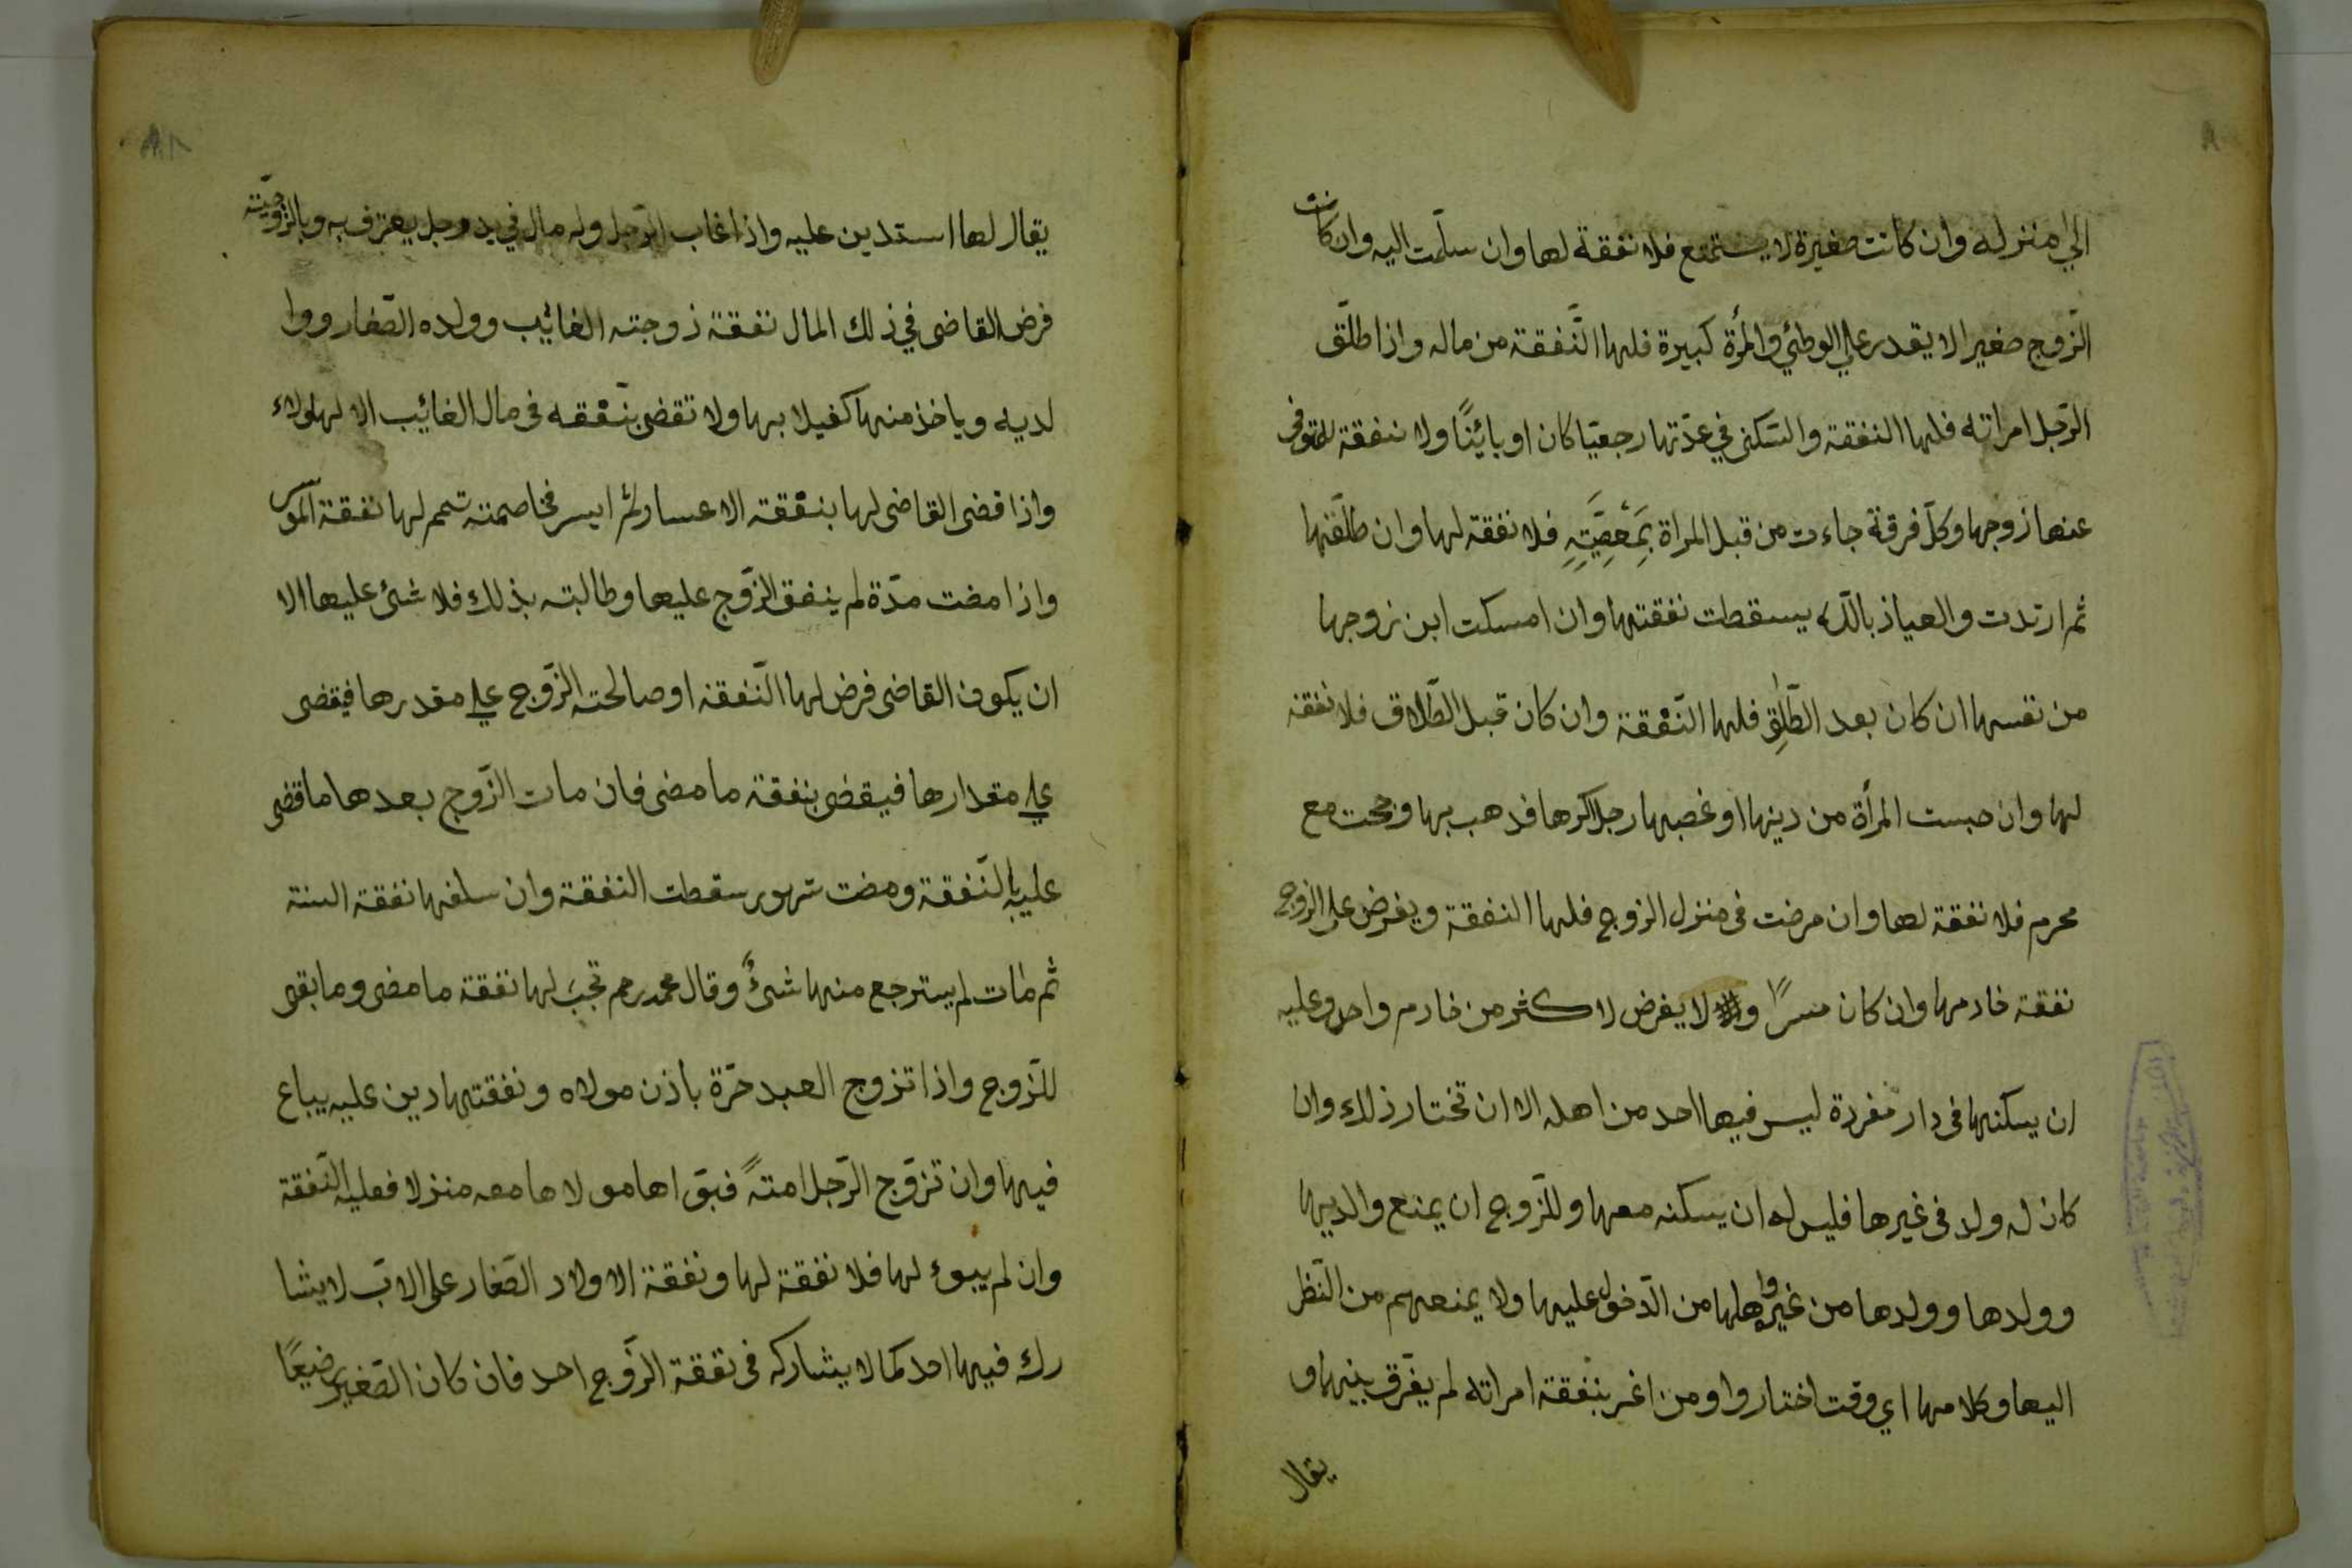 الي منزله وان كانت صغيرة لا يستمتع فلا نفقة لها وان سلّمت اليه وان كانت
الزّوج صغيرا لا يقدر علي الوطئي والمرأة كبيرة فلها النّفقة من ماله واذا طلّق
الرّجل امراته فلها النفقة والسّكنى في عدّتها رجعيّا كان او بائنًا ولا نفقة للمتوفى
عنها زوجها وكلّ فرقة جاءت من قبل المراة بمَعْصِيَتِهِ فلا نفقة لها وان طلّقها
ثم ارتدت والعياذ بالله يسقطت نفقتها وان امسكت ابن زوجها
من نفسها ان كان بعد الطّلٰقِ فلها النّفقة وان كان قبل الطّلاق فلا نفقة
لها وان حبست المرأة من دينها او غصبها رجل اكرها فذهب بها و حجت مع
محرم فلا نفقة لها وان مرضت فى منزل الزوج فلها النفقة ويفرض على الزوج
نفقة خادمها وان كان مسرًا و لا يفرض لاكثر من خادم واحد وعليه
ان يسكنها فى دار مفردة ليس فيها احد من اهله الا ان تختار ذلك وان
كان له ولد فى غيرها فليس له ان يسكنه معها وللزّوج ان يمنع والديها
وولدها وولدها من غيره واهلها من الدّخول عليها ولا يمنعهم من النّظر
اليها وكلامها اي وقت اختاروا ومن اغسر بنفقة امراته لم يفرّق بينهما و
يقال
يقال لها استدين عليه واذا غاب الرّجل وله مال في يد رجل يعترف به وبالزّوجيّته
فرض القاضى في ذلك المال نفقة زوجته الغائيب وولده الصّغار ووا
لديه وياخذ منها كفيلا بها ولا تقضى بنّفقه فى مال الغائيب الا لهولاء
واذا قضى القاضى لها بنفقته الاعسار ثمّ ايسر فخاصمته تمم لها نفقة الموسر
واذا مضت مدّة لم ينفق الزّوج عليها وطالبته بذلك فلا شئ عليها الا
ان يكون القاضى فرض لها النّفقة او صالحته الزّوج علي مقدرها فيقضى
علي مقدارها فيقضى بنفقة ما مضى فان مات الزّوج بعدها ما قضى
عليه بالنّفقة ومضت شهور سقطت النفقة وان سلفها نفقة السنة
ثم مٰات لم يسترجع منها شئٌ وقال محمد رحم تجبَ لها نفقة ما مضى وما بقى
للزّوج واذا تزوج العبد حرّة باذن مولاه ونفقتها دين عليه يباع
فيها وان تزوّج الرّجل امتهً فبوّاها مولاها معه منزلا فعليه النّفقة
وان لم يبوء لها فلا نفقة لها ونفقة الاولاد الصّغار على الابّ لا يشا
رك فيها احد كما لا يشاركه فى نفقة الزّوج احد فان كان الصّغير رضيعًا